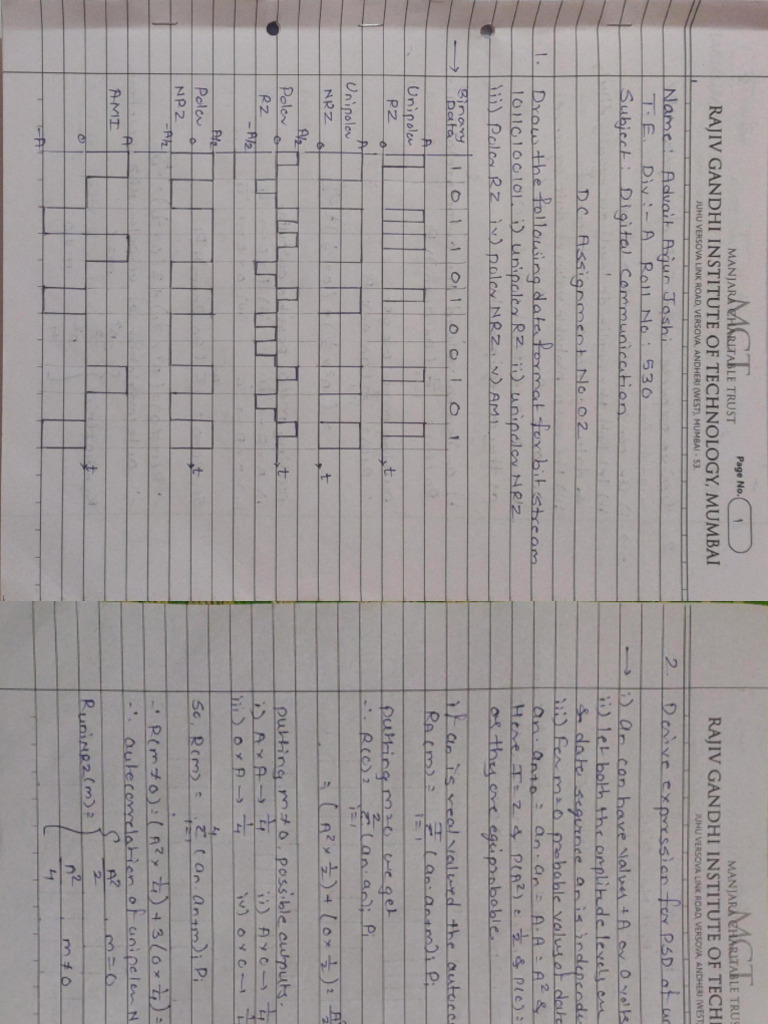 MANJARA CHARITABLE TRUST
RAJIV GANDHI INSTITUTE OF TECHNOLOGY, MUMBAI
JUHU VERSOVA LINK ROAD, VERSOVA, ANDHERI (WEST), MUMBAI - 53.
Page No. 1
Name : Advait Arjun Joshi
T.E. Div :- A Roll No : 530
Subject : Digital Communication
DC Assignment No. 02
1. Draw the following data format for bit stream
10110100101. i) unipolar RZ ii) unipolar NRZ
iii) Polar RZ iv) polar NRZ. v) AMI
→ Binary Data 1 0 1 1 0 1 0 0 1 0 1
A
Unipolar RZ
0 t
A
Unipolar NRZ
0 t
A/2
Polar RZ 0 t
-A/2
A/2
Polar NRZ 0 t
-A/2
A
AMI 0 t
-A
MANJARA CHARITABLE TRUS
RAJIV GANDHI INSTITUTE OF TECH
JUHU VERSOVA LINK ROAD, VERSOVA, ANDHERI (WEST
2. Derive expression for PSD of un
→ i) an can have values +A or 0 volts
ii) let both the amplitude levels an
& data sequence an is independe
iii) For m=0 probable value of data
an. an+0 = an. an = A.A = A² &
Here I = 2 & P(A²) = 1/2 & P(0) =
as they are equiprobable.
if an is real valued the autoco
RA(m) = I Σ i=1 (an. an+m)i Pi
putting m=0, we get
∴ R(0) = 2 Σ i=1 (an. an)i Pi
= (A² x 1/2) + (0 x 1/2) = A²/2
putting m≠0, possible outputs.
i) A x A → 1/4 ii) A x 0 → 1/4
iii) 0 x A → 1/4 iv) 0 x 0 → 1/4
So, R(m) = 4 Σ i=1 (an an+m)i Pi
∴ R(m≠0) = (A² x 1/4) + 3(0 x 1/4) =
∴ autocorrelation of unipolar N
RuniNRZ(m) = { A²/2 m=0
A²/4 m≠0